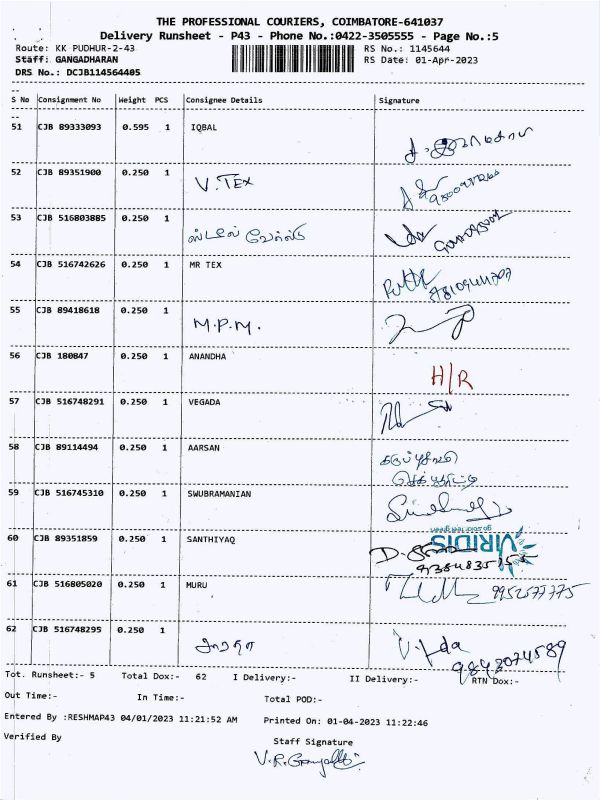 THE PROFESSIONAL COURIERS, COIMBATORE-641037
Delivery Runsheet - P43 - Phone No.:0422-3505555 - Page No.:5
Route: KK PUDHUR-2-43 RS No.: 1145644
Staff: GANGADHARAN RS Date: 01-Apr-2023
DRS No.: DCJB114564405
S No Consignment No Weight PCS Consignee Details Signature
51 CJB 89333093 0.595 1 IQBAL
52 CJB 89351900 0.250 1 V. TEX
53 CJB 516803885 0.210 1
54 CJB 516742626 0.250 1 MR TEX
55 CJB 89418618 0.250 1 M.P.M.
56 CJB 180847 0.250 1 ANANDHA H/R
57 CJB 516748291 0.250 1 VEGADA
58 CJB 89114494 0.250 1 AARSAN
59 CJB 516745310 0.250 1 SWUBRAMANIAN
60 CJB 89351859 0.250 1 SANTHIYAQ VIRIDIS
61 CJB 516805020 0.250 1 MURU 9952577775
62 CJB 516748295 0.250 1 சாரதா 9842074589
Tot. Runsheet:- 5 Total Dox:- 62 I Delivery:- II Delivery:- RTN Dox:-
Out Time:- In Time:- Total POD:-
Entered By :RESHMAP43 04/01/2023 11:21:52 AM Printed On: 01-04-2023 11:22:46
Verified By Staff Signature